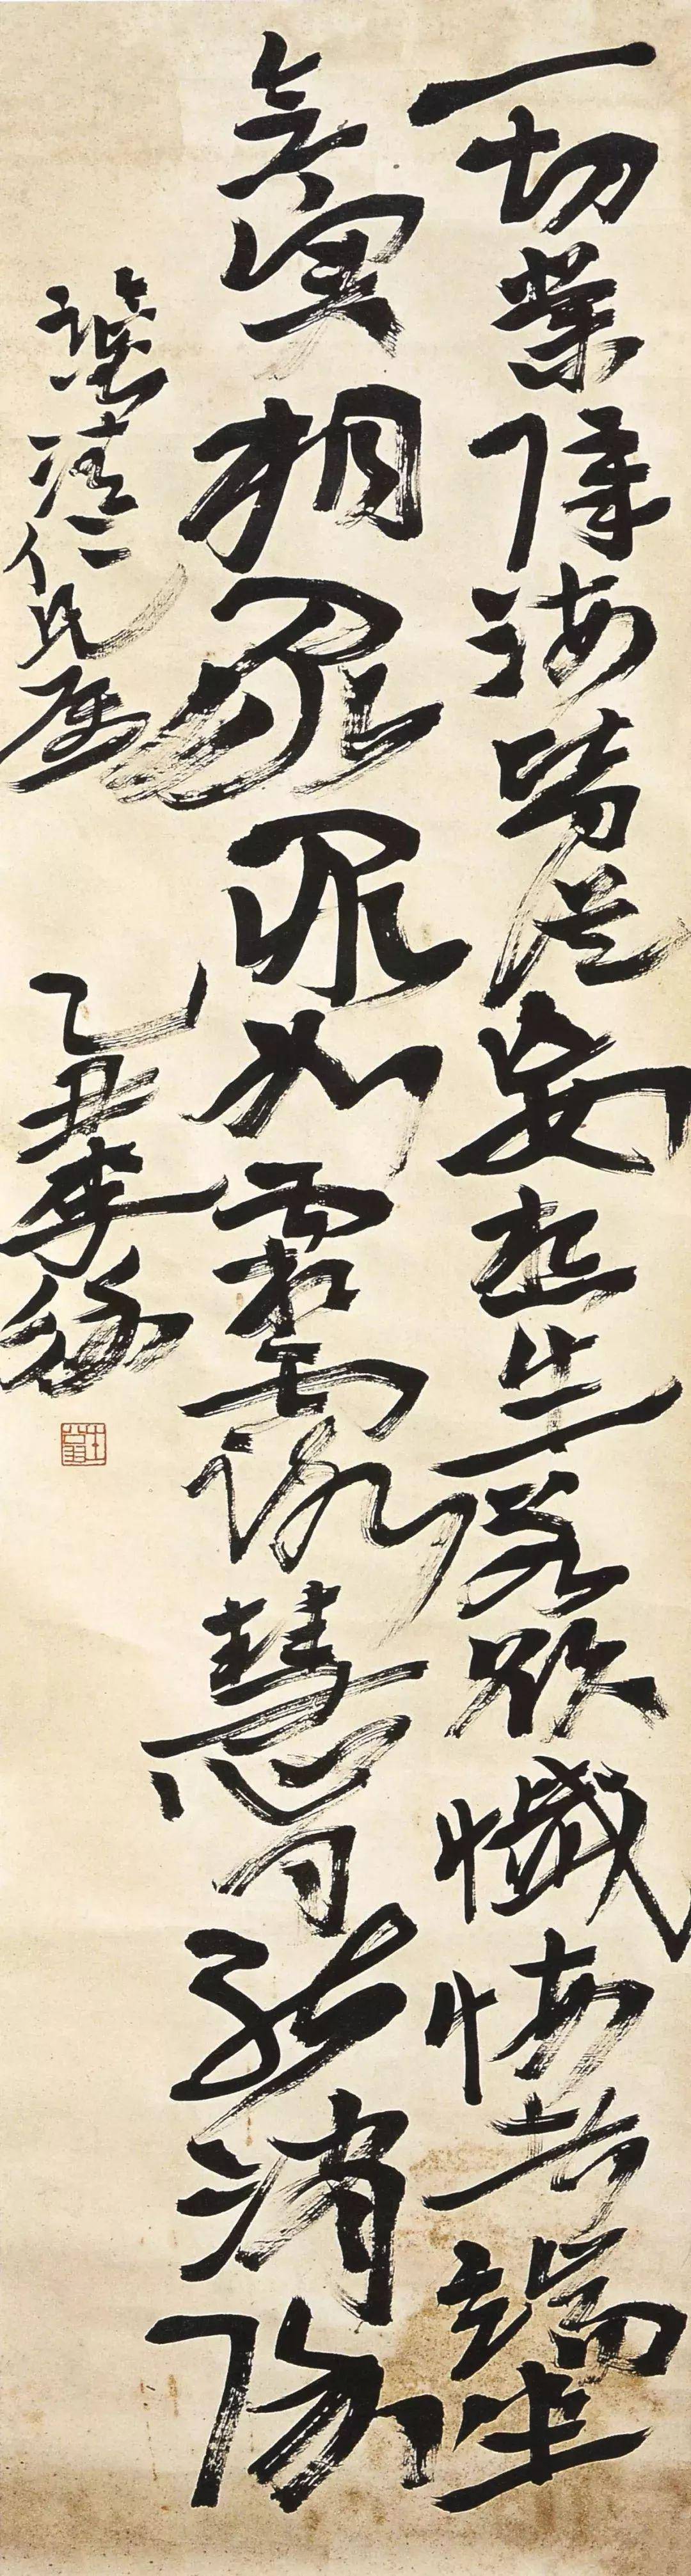 一切業障海皆從妄想生若欲懺悔者端坐
念実相眾罪如霜露慧日能消除
清仁兄属
乙丑李徐